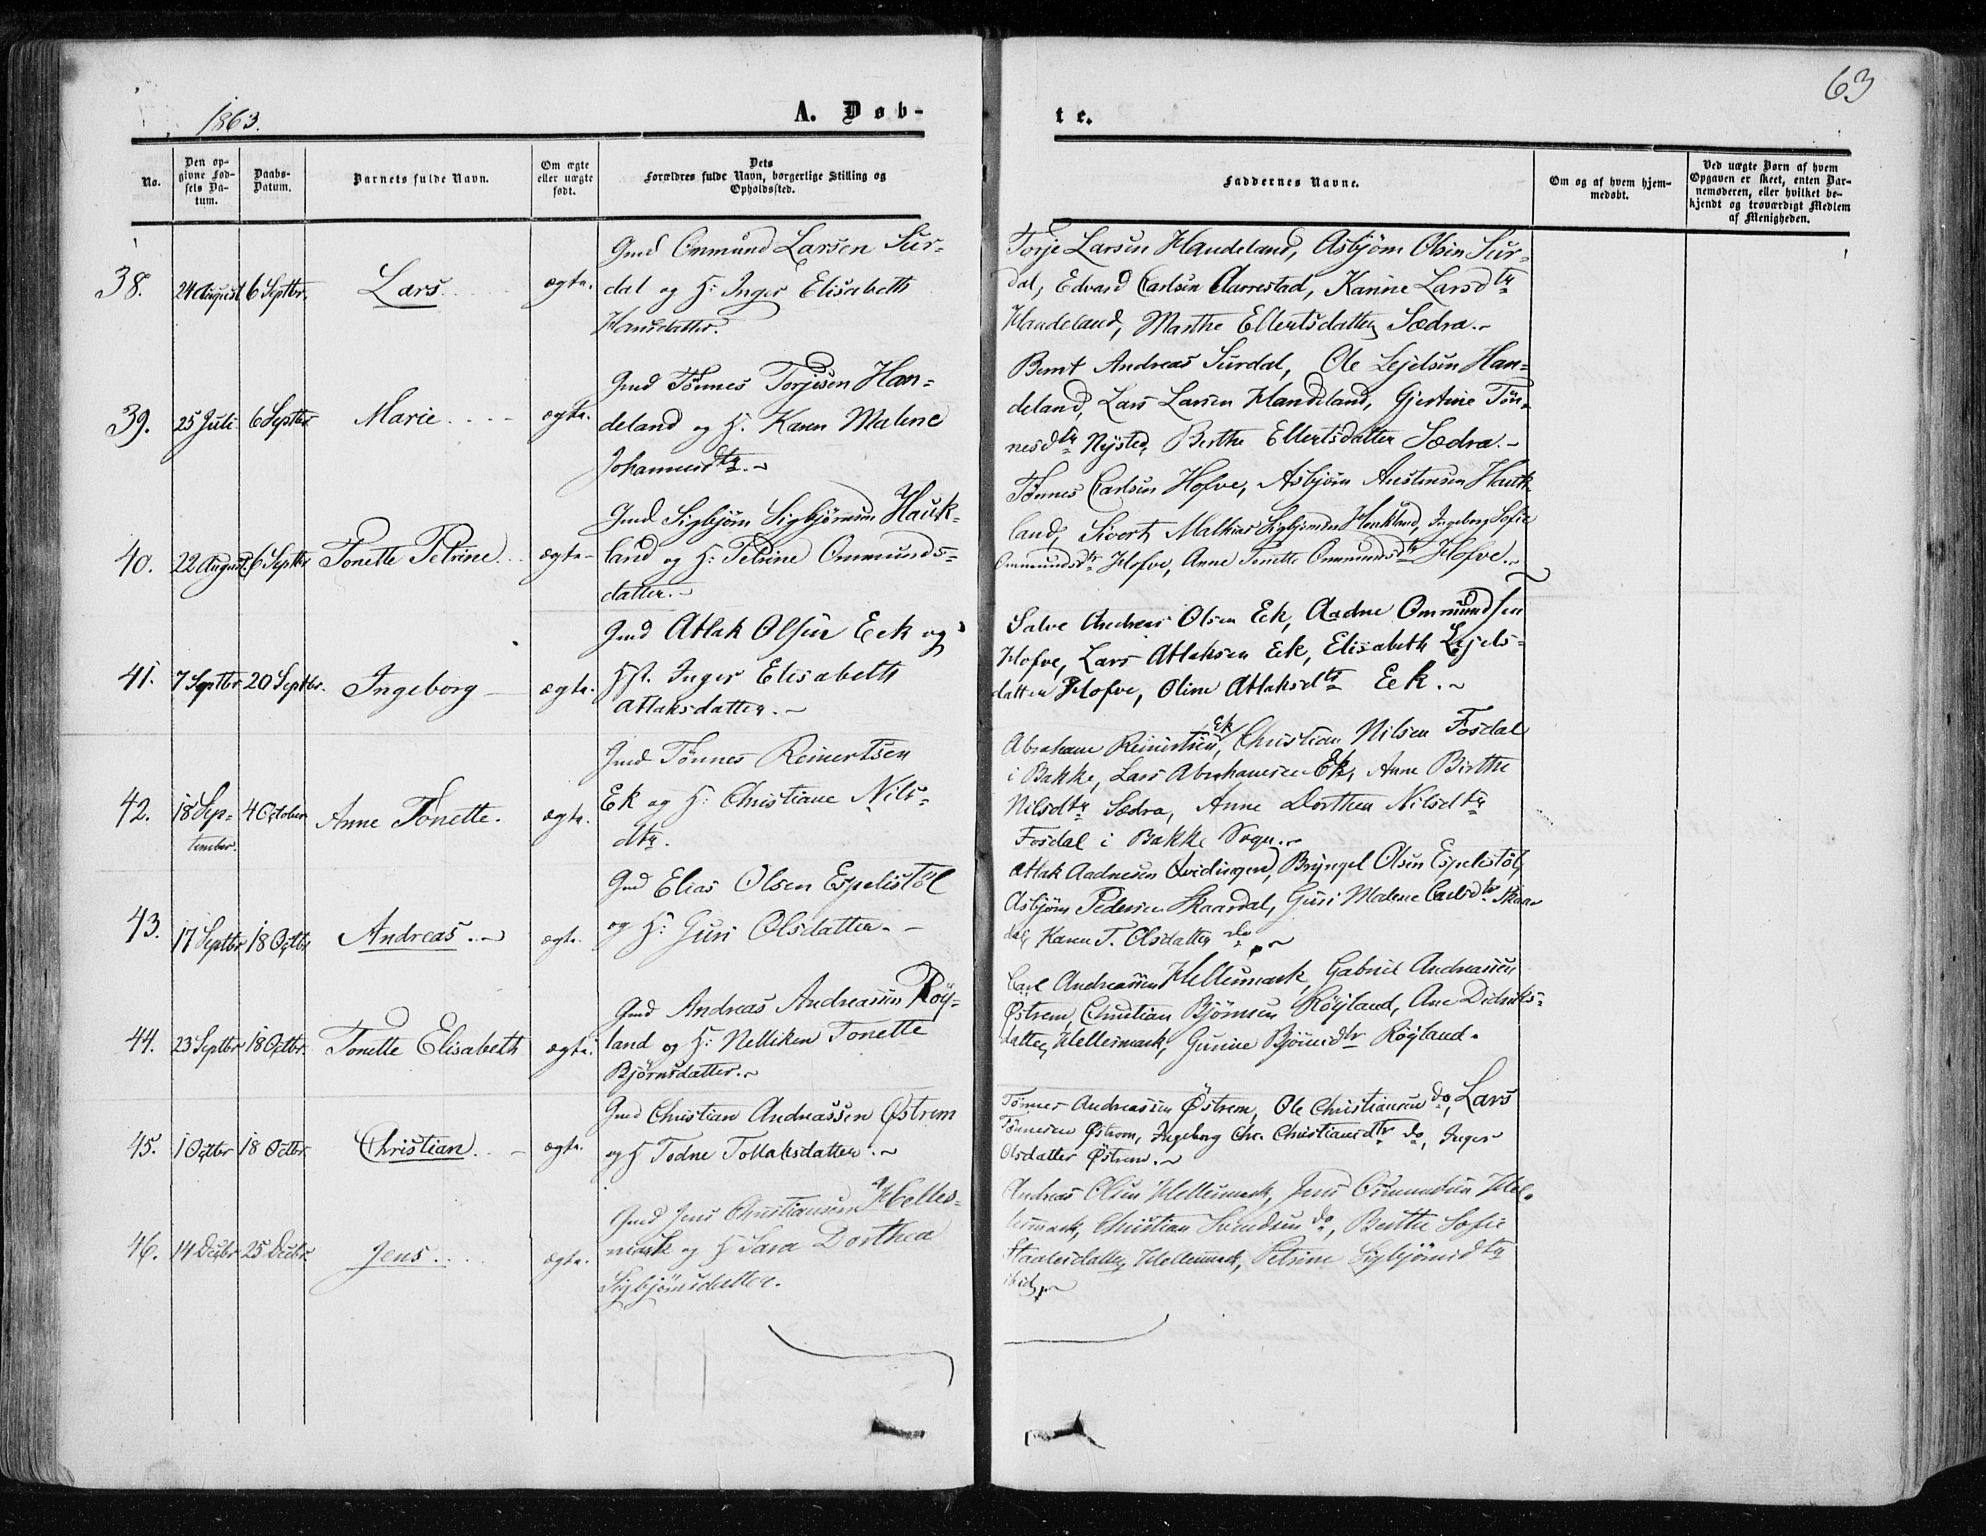 63
1863.
A. Døb-
te.
No.
Den op-
givne Fød-
sels Da-
tum.
Daabs-
Datum.
Barnets fulde Navn.
Om ægte
eller uægte
født.
Dets
Forældres fulde Navn, borgerlige Stilling og
Opholdssted.
Faddernes Navne.
Om og af hvem hjem-
medøbt.
Ved uægte Børn af hvem
Opgaven er skeet, enten Bar-
nemoderen, eller hvilket be-
kjendt og troværdigt Medlem
af Menigheden.
38. 24 August 6 Septbr. Lars ægte.
Gmd Ommund Larsen Sur-
dal og H: Inger Elisabeth
Hansdatter.
Torje Larsen Haudeland, Asbjørn Olsen Sur-
dal, Edvard Carlsen Aarrestad, Karine Larsdtr
Haadeland, Marthe Ellertsdatter Sædra.
39. 25 Juli 6 Septbr Marie ægte.
Gmd Tønnes Torjesen Han-
deland og H. Karen Malene
Johannesdtr.
Bernt Andreas Surdal, Ole Lejelsen Han-
deland, Lars Larsen Handeland, Gjertine Tøn-
nesdtr Nysted, Berthe Ellertsdatter Sædra.
40. 22 August 6 Septbr Tonette Petrine ægte
Gmd Sigbjørn Sigbjørnsen Hauk-
land og H: Petrine Ommunds-
datter.
Tønnes Carlsen Hofve, Asbjørn Austensen Hauk-
land, Sivert Mathias Sigbjørnsen Haukland, Ingeborg Sofie
Ommundsdtr Hofve, Anne Tonette Ommundsdtr Hofve.
41. 7 Septbr 20 Septbr. Ingeborg ægte.
Gmd Atlak Olsen Eek og
H. Inger Elisabeth
Atlaksdatter.
Salve Andreas Olsen Eek, Aadne Ommundsen
Hofve, Lars Atlaksen Eek, Elisabeth Lejels-
datter Hofve, Oline Atlaksdtr Eek.
42. 18 Sep-
tember. 4 October Anne Tonette. ægte.
Gmd Tønnes Reinertsen
Ek og H: Christiane Nils-
dtr.
Abraham Reinertsen Ek, Christian Nilsen Fosdal
i Bakke, Lars Abrahamsen Ek, Anne Birthe
Nilsdtr Sædra, Anne Dorthea Nilsdtr
Fosdal i Bakke Sogn.
43. 17 Septbr 18 Octbr Andreas ægte.
Gmd Elias Olsen Espelistøl
og H: Guri Olsdatter.
Atlak Aadnesen Qvidingen, Bryngel Olsen Espelistøl,
Asbjørn Pedersen Skaardal, Guri Malene Carlsdtr Skaar-
dal, Karen T. Olsdatter do
44. 23 Septbr 18 Octbr. Tonette Elisabeth ægte.
Gmd Andreas Andreassen Røy-
land og H: Nelliken Tonette
Bjørnsdatter.
Carl Andreassen Hellesmark, Gabriel Andreassen
Østrem, Christian Bjørnsen Røyland, Ane Didriks-
datter Hellesmark, Gunine Bjørnsdtr Røyland.
45. 1 Octbr 18 Octbr. Christian ægte.
Gmd Christian Andreassen Østrem
og H Todne Tollaksdatter.
Tønnes Andreassen Østrem, Ole Christiansen do, Lars
Tønnesen Østrem, Ingeborg Chr. Christiansdtr do, Inger
Olsdatter Østrem.
46. 14 Decbr 25 Decbr. Jens ægte.
Gmd Jens Christiansen Helles-
mark og H Sara Dorthea
Sigbjørnsdatter.
Andreas Olsen Hellesmark, Jens Osmundsen Hel-
lesmark, Christian Svendsen do, Berthe Sofie
Staalesdatter Hellesmark, Petrine Sigbjørnsdtr
ibid.